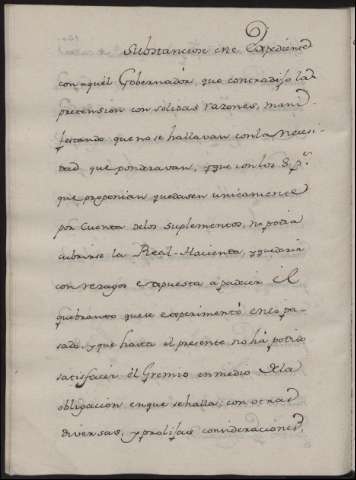 Substanciose este Expediente
con aquel Gobernador, que contradijo la
pretension con solidas razones, mani
festando que no se hallavan con la necesi
dad que ponderavan, y que con los 8 p.º
que proponian quedasen unicamente
por cuenta de los suplementos, no podria
cubrirse la Real-Hacienda, y quedaria
con rezagos expuesta à padecer el
quebranto que se experimentò en lo pa
sado, y que hasta el presente no hà podido
satisfacer el Gremio en medio de la
obligacion en que se halla, con otras
diversas, y prolijas consideraciones,